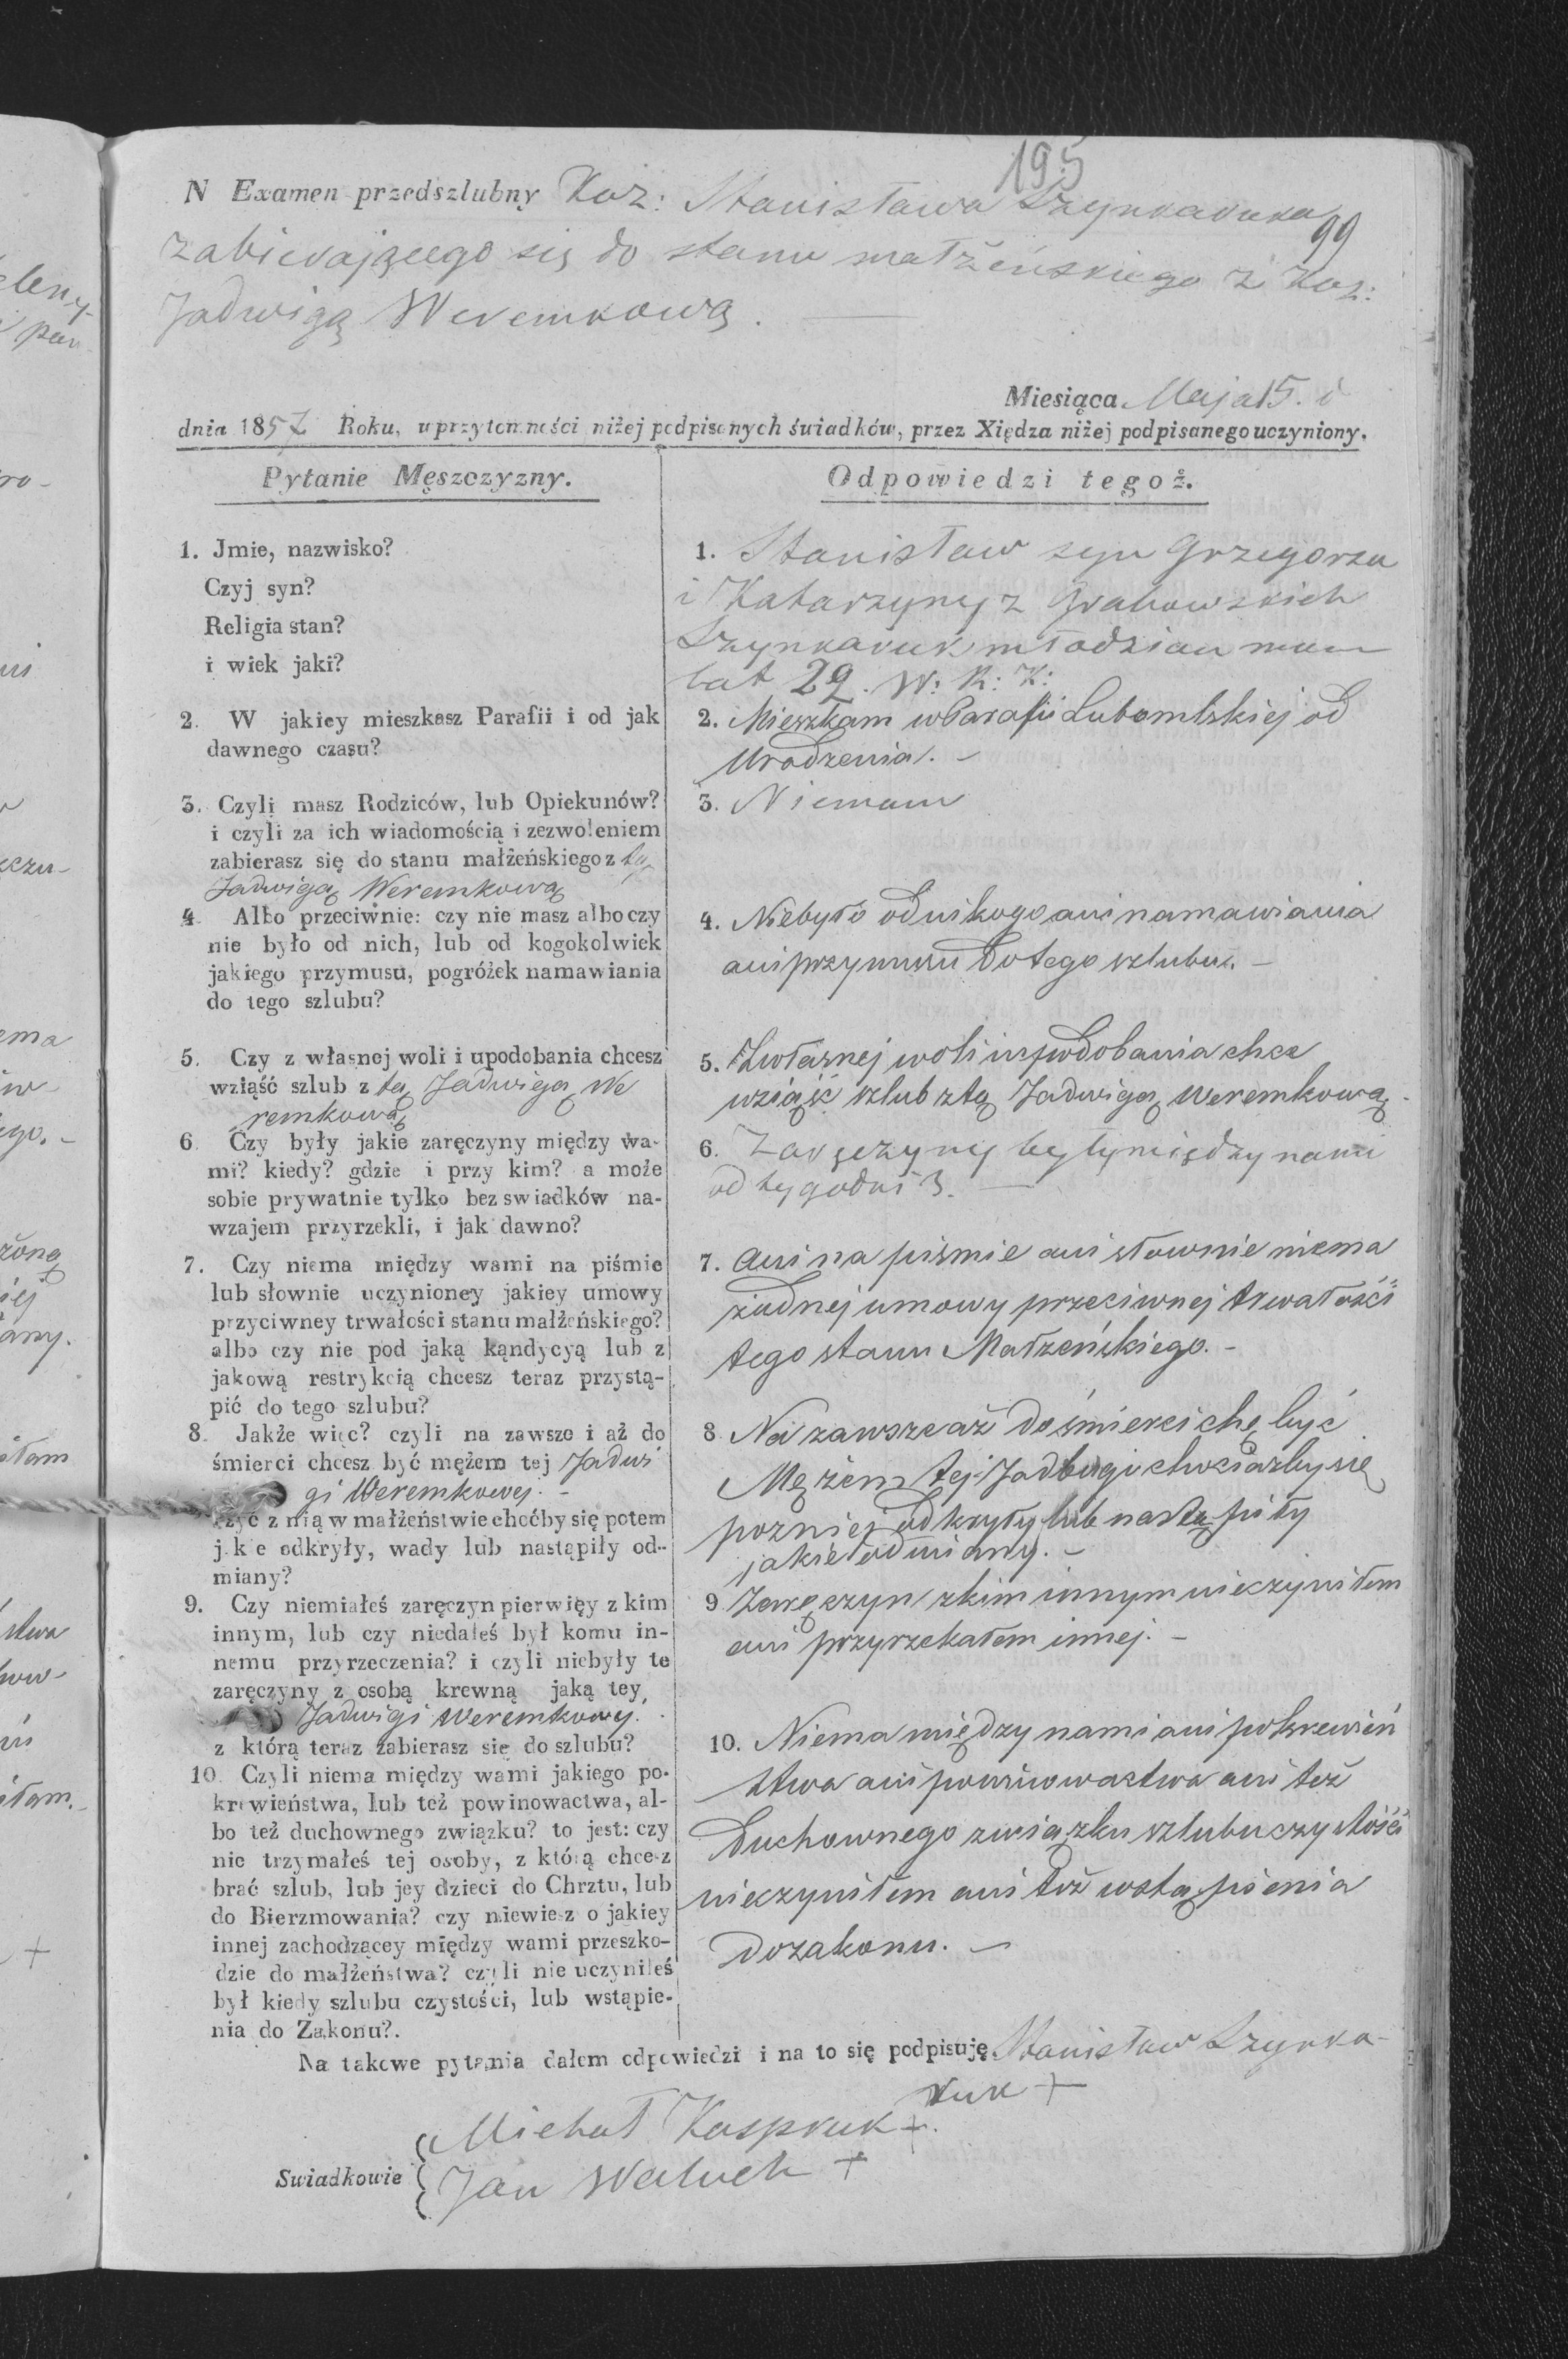 195
N Examen przedszlubny Koz: Stanisława Szynkaruka
99
zabierającego się do stanu małżeńskiego z Koz:
Jadwigą Weremkową.
Miesiąca Maja 15. d
dnia 1857 Roku, w przytomności niżej podpisanych świadków, przez Xiędza niżej podpisanego uczyniony.
Pytanie Męszczyzny.
1. Jmie, nazwisko?
Czyj syn?
Religia stan?
i wiek jaki?
2. W jakiey mieszkasz Parafii i od jak
dawnego czasu?
3. Czyli masz Rodziców, lub Opiekunów?
i czyli za ich wiadomością i zezwoleniem
zabierasz się do stanu małżeńskiego z tą
Jadwigą Weremkową
4. Albo przeciwnie: czy nie masz albo czy
nie było od nich, lub od kogokolwiek
jakiego przymusu, pogróżek namawiania
do tego szlubu?
5. Czy z własnej woli i upodobania chcesz
wziąść szlub z tą Jadwigą We
remkową
6. Czy były jakie zaręczyny między wa-
mi? kiedy? gdzie i przy kim? a może
sobie prywatnie tylko bez swiadków na-
wzajem przyrzekli, i jak dawno?
7. Czy niema między wami na piśmie
lub słownie uczynioney jakiey umowy
przyciwney trwałości stanu małżeńskiego?
albo czy nie pod jaką kąndycyą lub z
jakową restrykcią chcesz teraz przystą-
pić do tego szlubu?
8. Jakże więc? czyli na zawsze i aż do
śmierci chcesz być mężem tej Jadwi
gi Weremkowej. -
żyć z nią w małżeństwie choćby się potem
jakie odkryły, wady lub nastąpiły od-
miany?
9. Czy niemiałeś zaręczyn pierwięy z kim
innym, lub czy niedałeś był komu in-
nemu przyrzeczenia? i czyli niebyły te
zaręczyny z osobą krewną jaką tey
Jadwigi Weremkowy.
z którą teraz zabierasz się do szlubu?
10. Czyli niema między wami jakiego po-
krewieństwa, lub też powinowactwa, al-
bo też duchownego związku? to jest: czy
nie trzymałeś tej osoby, z którą chcesz
brać szlub, lub jey dzieci do Chrztu, lub
do Bierzmowania? czy niewiesz o jakiey
innej zachodzącey między wami przeszko-
dzie do małżeństwa? czyli nie uczyniłeś
był kiedy szlubu czystości, lub wstąpie-
nia do Zakonu?.
Odpowiedzi tegoż.
1. Stanisław syn Grzegorza
i Katarzyny z Grabowskich
Szynkaruk młodzian mam
lat 29. W: R: K:
2. Mieszkam w Parafii Lubomlskiej od
Urodzenia. -
3. Niemam
4. Niebyło od nikogo ani namawiania
ani przymusu do tego szlubu. -
5. Zwłasnej woli iupodobania chce
wziąść szlub ztą Jadwigą Weremkową.
6. Zaręczyny były między nami
od tygodni 3. -
7. Ani na piśmie ani słownie niema
żadnej umowy przeciwnej trwałości
tego stanu Małżeńskiego. -
8 Na zawsze aż do śmierci chę być
Mężem tej Jadwigi chociażby się
pozniej odkryły lub nastąpiły
jakie odmiany. -
9 Zaręczyn zkim innym nieczyniłem
ani przyrzekałem innej. -
10. Niema między nami ani pokrewień
stwa ani powinowastwa ani też
Duchownego związku szlubu czystości
nieczyniłem ani też wstąpienia
do zakonu. -
Na takowe pytania dałem odpowiedzi i na to się podpisuję. Stanisław Szynka-
ruk +
Swiadkowie
Michał Kaspruk +.
Jan Waluch +